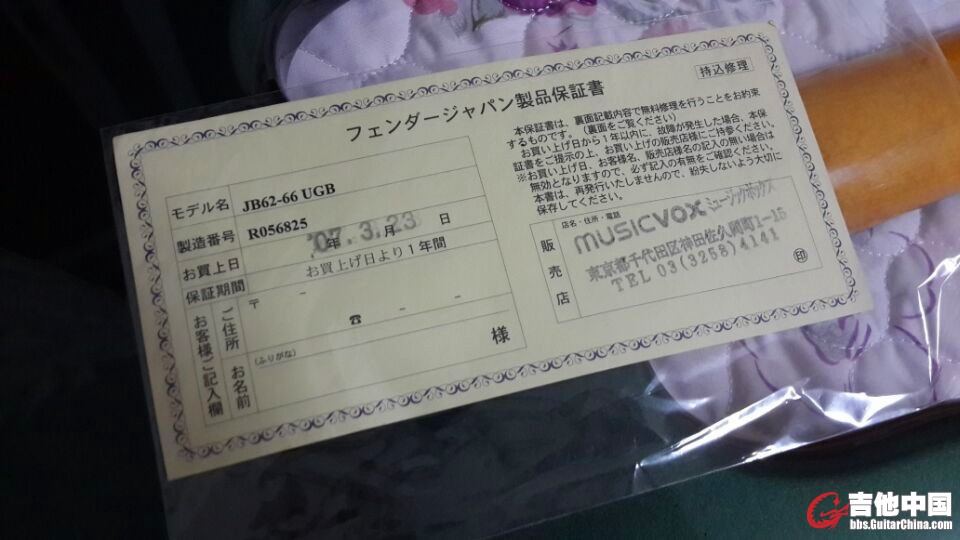 持込修理
フェンダージャパン製品保証書
モデル名 JB62-66 UGB
製造番号 R056825
お買上日 '07年 3.月23 日
保証期間 お買上げ日より1年間
お客様ご記入欄
ご住所 〒 - ☎ - -
お名前 (ふりがな) 様
本保証書は、裏面記載内容で無料修理を行うことをお約束
するものです。(裏面をご覧ください)
お買い上げ日から1年以内に、故障が発生した場合、本保
証書をご提示の上、お買い上げの販売店様にご持参ください。
※お買い上げ日、お客様名、販売店様名の記入の無い場合は
無効となりますので、必ず記入の有無をご確認ください。
本書は、再発行いたしませんので、紛失しないよう大切に
保存してください。
販売店
店名・住所・電話
MUSICVOX ミュージックボックス
東京都千代田区神田佐久間町1-15
TEL 03(3258)4141
印
吉他中国
bbs.GuitarChina.com